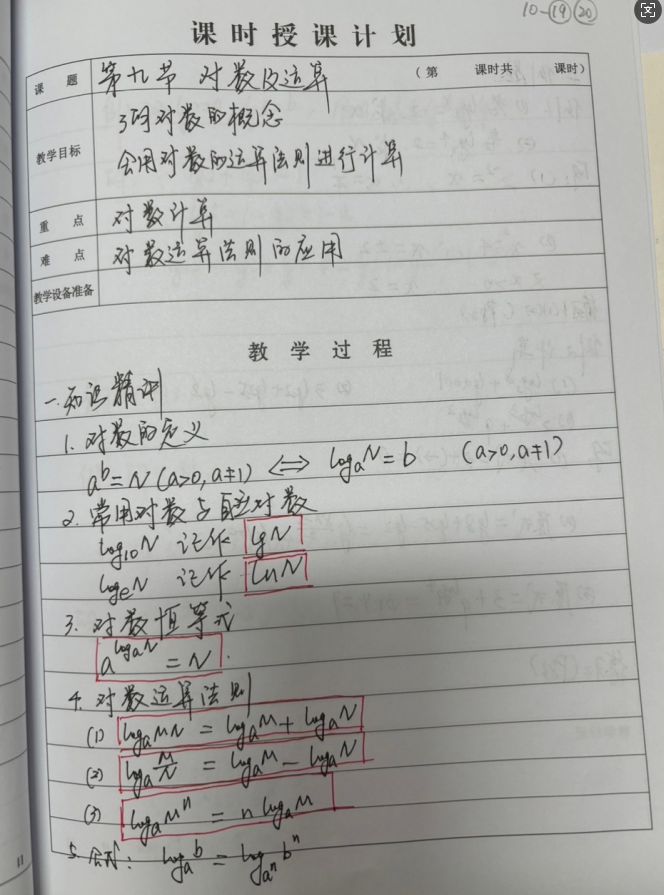 10-⑲⑳
课时授课计划
课题 第九节 对数及运算 （第 课时共 课时）
教学目标 了解对数的概念
会用对数的运算法则进行计算
重点 对数计算
难点 对数运算法则的应用
教学设备准备
教学过程
一.知识精讲
1.对数的定义
a^b=N(a>0,a≠1) ⟺ log_a N=b (a>0,a≠1)
2.常用对数与自然对数
log_10 N 记作 lgN
log_e N 记作 lnN
3.对数恒等式
a^{log_a N}=N.
4.对数运算法则
(1) log_a MN = log_a M + log_a N
(2) log_a \frac{M}{N} = log_a M - log_a N
(3) log_a M^n = n log_a M
5.公式: log_a b = log_{a^n} b^n
11